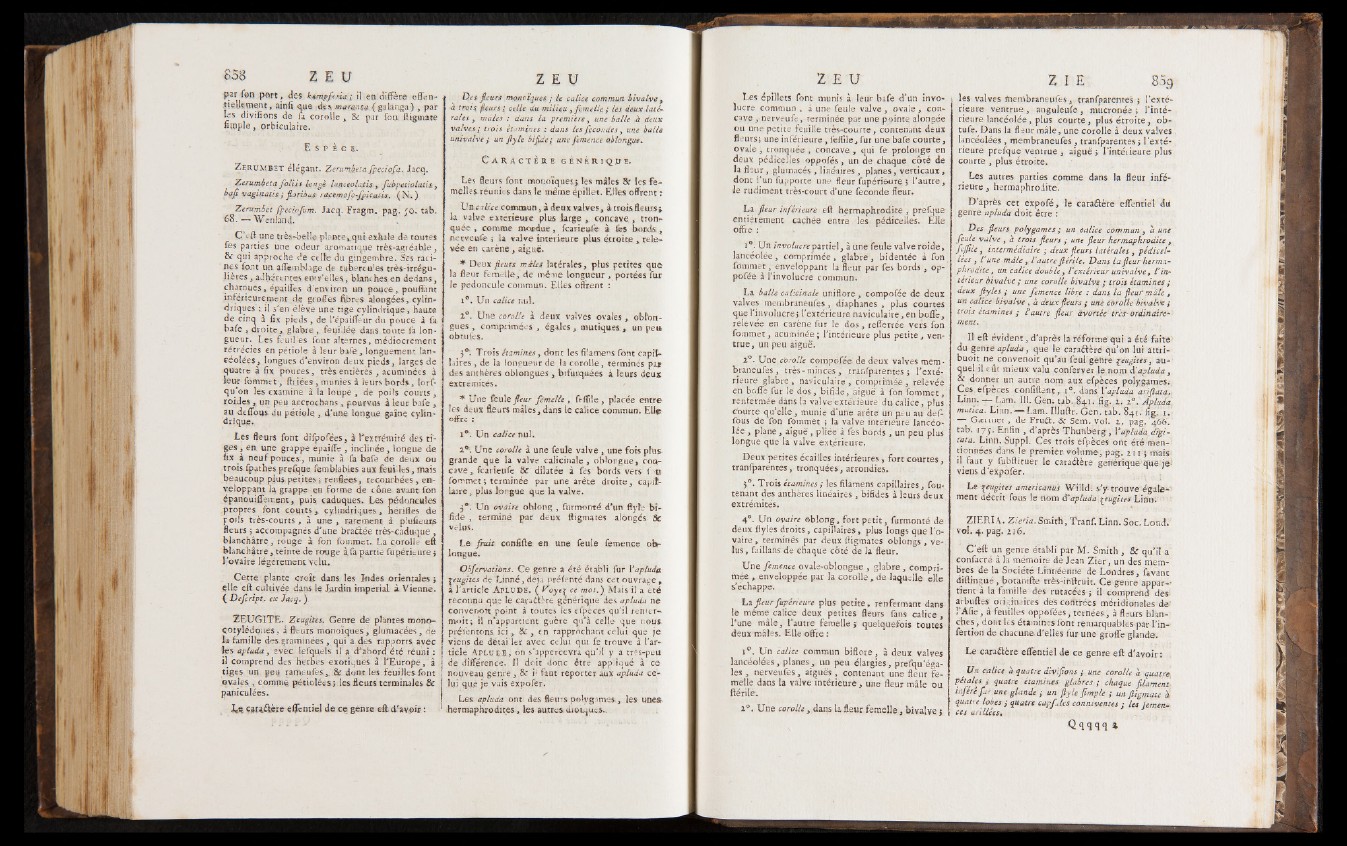 858 Z E U
par ſon port, des kæmpferia; il en diffère eſſen-
tiellement, ainſi que des maranta (galanga), par
les diviſions de ſa corolle, & par ſon ſtigmate
ſimple, orbiculaire.
ESPÈCE.
ZERUMBET élégant. Zerumbeta ſpecioſa. Jacq.
Zerumbeta foliis longè lanceolatis, ſubpetiolatis,
baſi vaginatis; floribus racemoſo-ſpicatis. (N.)
Zerumbet ſpecioſum. Jacq. Fragm. pag. 50. tab.
68. — Wenland.
C'eſt une très-belle plante, qui exhale de toutes
ſes parties une odeur aromatique très-agréable,
& qui approche de celle du gingembre. Ses raci-
nes ſont un aſſemblage de tubercules très-irrégu-
lières, adhérentes entr'elles, blanches en dedans,
charnues, épaiſſes d'environ un pouce, pouſſant
inférieurement de groſſes fibres alongées, cylin-
driques: il s'en élève une tige cylindrique, haute
de cinq à ſix pieds, de l'épaiſſeur du pouce à ſa
baſe, droite, glabre, feuillée dans toute ſa lon-
gueur. Les feuilles ſont alternes, médiocrement
rétrécies en pétiole à leur baſe, longuement lan-
céolées, longues d'environ deux pieds, larges de
quatre à ſix pouces, très entières, acuminées à
leur ſommet, ſtriées, munies à leurs bords, lorſ-
qu'on les examine à la loupe, de poils courts,
roides, un peu accrochans, pourvus à leur baſe,
au deſſous du pétiole, d'une longue gaîne cylin-
drique.
Les fleurs ſont diſpoſées, à l'extrémité des ti-
ges, en une grappe épaiſſe, inclinée, longue de
ſix à neuf pouces, munie à ſa baſe de deux ou
trois ſpathes preſque ſemblables aux feuilles, mais
beaucoup plus petites; renflées, recourbées, en-
veloppant la grappe en forme de cône avant ſon
épanouiſſement, puis caduques. Les pédoncules
propres ſont courts, cylindriques, hériſſés de
poils très-courts, à une, rarement à pluſieurs
fleurs; accompagnés d'une bractée très-caduque,
blanchâtre, rouge à ſon ſommet. La corolle eſt
blanchâtre, teinte de rouge à ſa partie ſupérieure;
l'ovaire légérement velu.
Cette plante croît dans les Indes orientales;
elle eſt cultivée dans le Jardin impérial à Vienne.
(Deſcript. ex Jacq.)
ZEUGITE. Zeugites. Genre de plantes mono-
cotylédones, à fleurs monoïques, glumacées, de
la famille des graminées, qui a des rapports avec
les apluda, avec leſquels il a d'abord été réuni:
il comprend des herbes exotiques à l'Europe, à
tiges un peu rameuſes, & dont les feuilles ſont
ovales, comme pétiolées; les fleurs terminales &
paniculées.
Le caractère eſſentiel de ce genre eſt d'avoir:
Z E U
Des fleurs monoïques; le calice commun bivalve,
à trois fleurs; celle du milieu, femelle; les deux laté-
rales, mâles: dans la première, une balle à deux
valves; trois étamines: dans les ſecondes, une balle
univalve; un ſtyle bifide; une ſemence oblongue.
CARACTÈRE GÉNÉRIQUE.
Les fleurs ſont monoïques; les mâles & les fe-
melles réunies dans le même épillet. Elles offrent:
Un calice commun, à deux valves, à trois fleurs;
la valve extérieure plus large, concave, tron-
quée, comme mordue, ſcarieuſe à ſes bords,
nerveuſe; la valve intérieure plus étroite, rele-
vée en carène, aiguë.
* Deux fleurs mâles latérales, plus petites que
la fleur femelle, de même longueur, portées ſur
le pédoncule commun. Elles offrent:
1°. Un calice nul.
2°. Une corolle à deux valves ovales, oblon-
gues, comprimées, égales, mutiques, un peu
obtuſes.
3°. Trois étamines, dont les filamens ſont capil-
laires, de la longueur de la corolle, terminés par
des anthères oblongues, bifurquées à leurs deux
extrémités.
* Une ſeule fleur femelle, ſeſſile, placée entre
les deux fleurs mâles, dans le calice commun. Elle
offre:
1°. Un calice nul.
2°. Une corolle à une ſeule valve, une fois plus
grande que la valve calicinale, oblongue, con-
cave, ſcarieuſe & dilatée à ſes bords vers ſon
ſommet; terminée par une arête droite, capil-
laire, plus longue que la valve.
3°. Un ovaire oblong, ſurmonté d'un ſtyle bi-
fide, terminé par deux ſtigmates alongés &
velus.
Le fruit conſiſte en une ſeule ſemence ob-
longue.
Obſervations. Ce genre a été établi ſur l'apluda
zeugites de Linné, déjà préſenté dans cet ouvrage,
à l'article APLUDE. (Voyez ce mot.) Mais il a été
reconnu que le caractère générique des apluda ne
convenoit point à toutes les eſpèces qu'il renfer-
moit; il n'appartient guère qu'à celle que nous
préſentons ici, &, en rapprochant celui que je
viens de détailler avec celui qui ſe trouve à l'ar-
ticle APLUDE, on s'appercevra qu'il y a très-peu
de différence. Il doit donc être appliqué à ce
nouveau genre, & il faut reporter aux apluda ce-
lui que je vais expoſer.
Les apluda ont des fleurs polygames, les unes
hermaphrodites, les autres dioïques.
Z E U
Les épillets ſont munis à leur baſe d'un invo-
lucre commun, à une ſeule valve, ovale, con-
cave, nerveuſe, terminée par une pointe alongée
ou une petite feuille très-courte, contenant deux
fleurs; une inférieure, ſeſſile, ſur une baſe courte,
ovale, tronquée, concave, qui ſe prolonge en
deux pédicelles oppoſés, un de chaque côté de
la fleur, glumacés, linéaires, planes, verticaux,
dont l'un ſupporte une fleur ſupérieure; l'autre,
le rudiment très-court d'une ſeconde fleur.
La fleur inférieure eſt hermaphrodite, preſque
entiérement cachée entre les pédicelles. Elle
offre:
1°. Un involucre partiel, à une ſeule valve roide,
lancéolée, comprimée, glabre, bidentée à ſon
ſommet, enveloppant la fleur par ſes bords, op-
poſée à l'involucre commun.
La balle calicinale uniflore, compoſée de deux
valves membraneuſes, diaphanes, plus courtes
que l'involucre; l'extérieure naviculaire, en boſſe,
relevée en carène ſur le dos, reſſerrée vers ſon
ſommet, acuminée; l'intérieure plus petite, ven-
true, un peu aiguë.
2°. Une corolle compoſée de deux valves mem-
braneuſes, très-minces, tranſparentes; l'exté-
rieure glabre, naviculaire, comprimée, relevée
en boſſe ſur le dos, bifide, aiguë à ſon ſommet,
renfermée dans la valve extérieure du calice, plus
courte qu'elle, munie d'une arête un peu au deſ-
ſous de ſon ſommet; la valve intérieure lancéo-
lée, plane, aiguë, pliée à ſes bords, un peu plus
longue que la valve extérieure.
Deux petites écailles intérieures, fort courtes,
tranſparentes, tronquées, arrondies.
3°. Trois étamines; les filamens capillaires, ſou-
tenant des anthères linéaires, bifides à leurs deux
extrémités.
4°. Un ovaire oblong, fort petit, ſurmonté de
deux ſtyles droits, capillaires, plus longs que l'o-
vaire, terminés par deux ſtigmates oblongs, ve-
lus, ſaillans de chaque côté de la fleur.
Une ſemence ovale-oblongue, glabre, compri-
mée, enveloppée par la corolle, de laquelle elle
s'échappe.
La fleur ſupérieure plus petite, renfermant dans
le même calice deux petites fleurs ſans calice,
l'une mâle, l'autre femelle; quelquefois toutes
deux mâles. Elle offre:
1°. Un calice commun biflore, à deux valves
lancéolées, planes, un peu élargies, preſqu'éga-
les, nerveuſes, aiguës, contenant une fleur fe-
melle dans la valve intérieure, une fleur mâle ou
ſtérile.
2°. Une corolle, dans la fleur femelle, bivalve;
Z I E 859
les valves membraneuſes, tranſparentes; l'exté-
rieure ventrue, anguleuſe, mucronée; l'inté-
rieure lancéolée, plus courte, plus étroite, ob-
tuſe. Dans la fleur mâle, une corolle à deux valves
lancéolées, membraneuſes, tranſparentes; l'exté-
rieure preſque ventrue, aiguë; l'intérieure plus
courte, plus étroite.
Les autres parties comme dans la fleur infé-
rieure, hermaphrodite.
D'après cet expoſé, le caractère eſſentiel du
genre apluda doit être:
Des fleurs polygames; un calice commun, à une
ſeule valve, à trois fleurs; une fleur hermaphrodite,
ſeſſile, intermédiaire; deux fleurs latérales, pédicel-
lées, l'une mâle, l'autre ſtérile. Dans la fleur herma-
phrodite, un calice double, l'extérieur univalve, l'in-
térieur bivalve; une corolle bivalve; trois étamines;
deux ſtyles; une ſemence libre: dans la fleur mâle,
un calice bivalve, à deux fleurs; une corolle bivalve;
trois étamines; l'autre fleur avortée très-ordinaire-
ment.
Il eſt évident, d'après la réforme qui a été faite
du genre apluda, que le caractère qu'on lui attri-
buoit ne convenoit qu'au ſeul genre zeugites, au-
quel il eût mieux valu conſerver le nom d'apluda,
& donner un autre nom aux eſpèces polygames.
Ces eſpèces conſiſtent, 1°. dans l'apluda ariſtata.
Linn. — Lam. Ill. Gen. tab. 841. fig. 2. 2°. Apluda
mutica. Linn. — Lam. Illuſtr. Gen. tab. 841. fig. 1.
— Gærtner, de Fruct. & Sem. vol. 2. pag. 466.
tab. 175. Enfin, d'après Thunberg, l'apluda digi-
tata. Linn. Suppl. Ces trois eſpèces ont été men-
tionnées dans le premier volume, pag. 211; mais
il faut y ſubſtituer le caractère générique que je
viens d'expoſer.
Le zeugites americanus Willd. s'y trouve égale-
ment décrit ſous le nom d'apluda zeugites Linn.
ZIERIA. Zieria. Smith, Tranſ. Linn. Soc. Lond.
vol. 4. pag. 216.
C'eſt un genre établi par M. Smith, & qu'il a
conſacré à la mémoire de Jean Zier, un des mem-
bres de la Société Linnéenne de Londres, ſavant
diſtingué, botaniſte très-inſtruit. Ce genre appar-
tient à la famille des rutacées; il comprend des
arbuſtes originaires des contrées méridionales de
l'Aſie, à feuilles oppoſées, ternées, à fleurs blan-
ches, dont les étamines ſont remarquables par l'in-
ſertion de chacune d'elles ſur une groſſe glande.
Le caractère eſſentiel de ce genre eſt d'avoir:
Un calice à quatre diviſions; une corolle à quatre
pétales; quatre étamines glabres; chaque filament
inſéré ſur une glande; un ſtyle ſimple; un ſtigmate à
quatre lobes; quatre capſules conniventes; les ſemen-
ces arillées.
Qqqqq 2